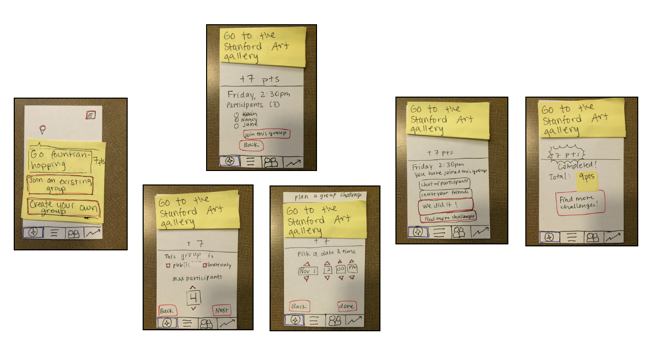 Go fountain-
hopping
7pts
Join an existing
group
Create your own
group
Go to the
Stanford Art
gallery
+7 pts
Friday, 2:30pm
Participants
Kevin
Nancy
Jane
Join this group
Back
Go to the
Stanford Art
gallery
+ 7
This group is
public
invite only
max participants
4
Back
Next
plan a group challenge
Go to the
Stanford Art
gallery
+ 7
Pick a date & time
Nov 1
12
00
PM
Back
done
Go to the
Stanford Art
gallery
+7 pts
Friday 2:30pm
You have joined this group
chat w/ participants
invite your friends
We did it!
Find more challenges
Go to the
Stanford Art
gallery
7 pts
Completed!
Total: 9pts
Find more
challenges!